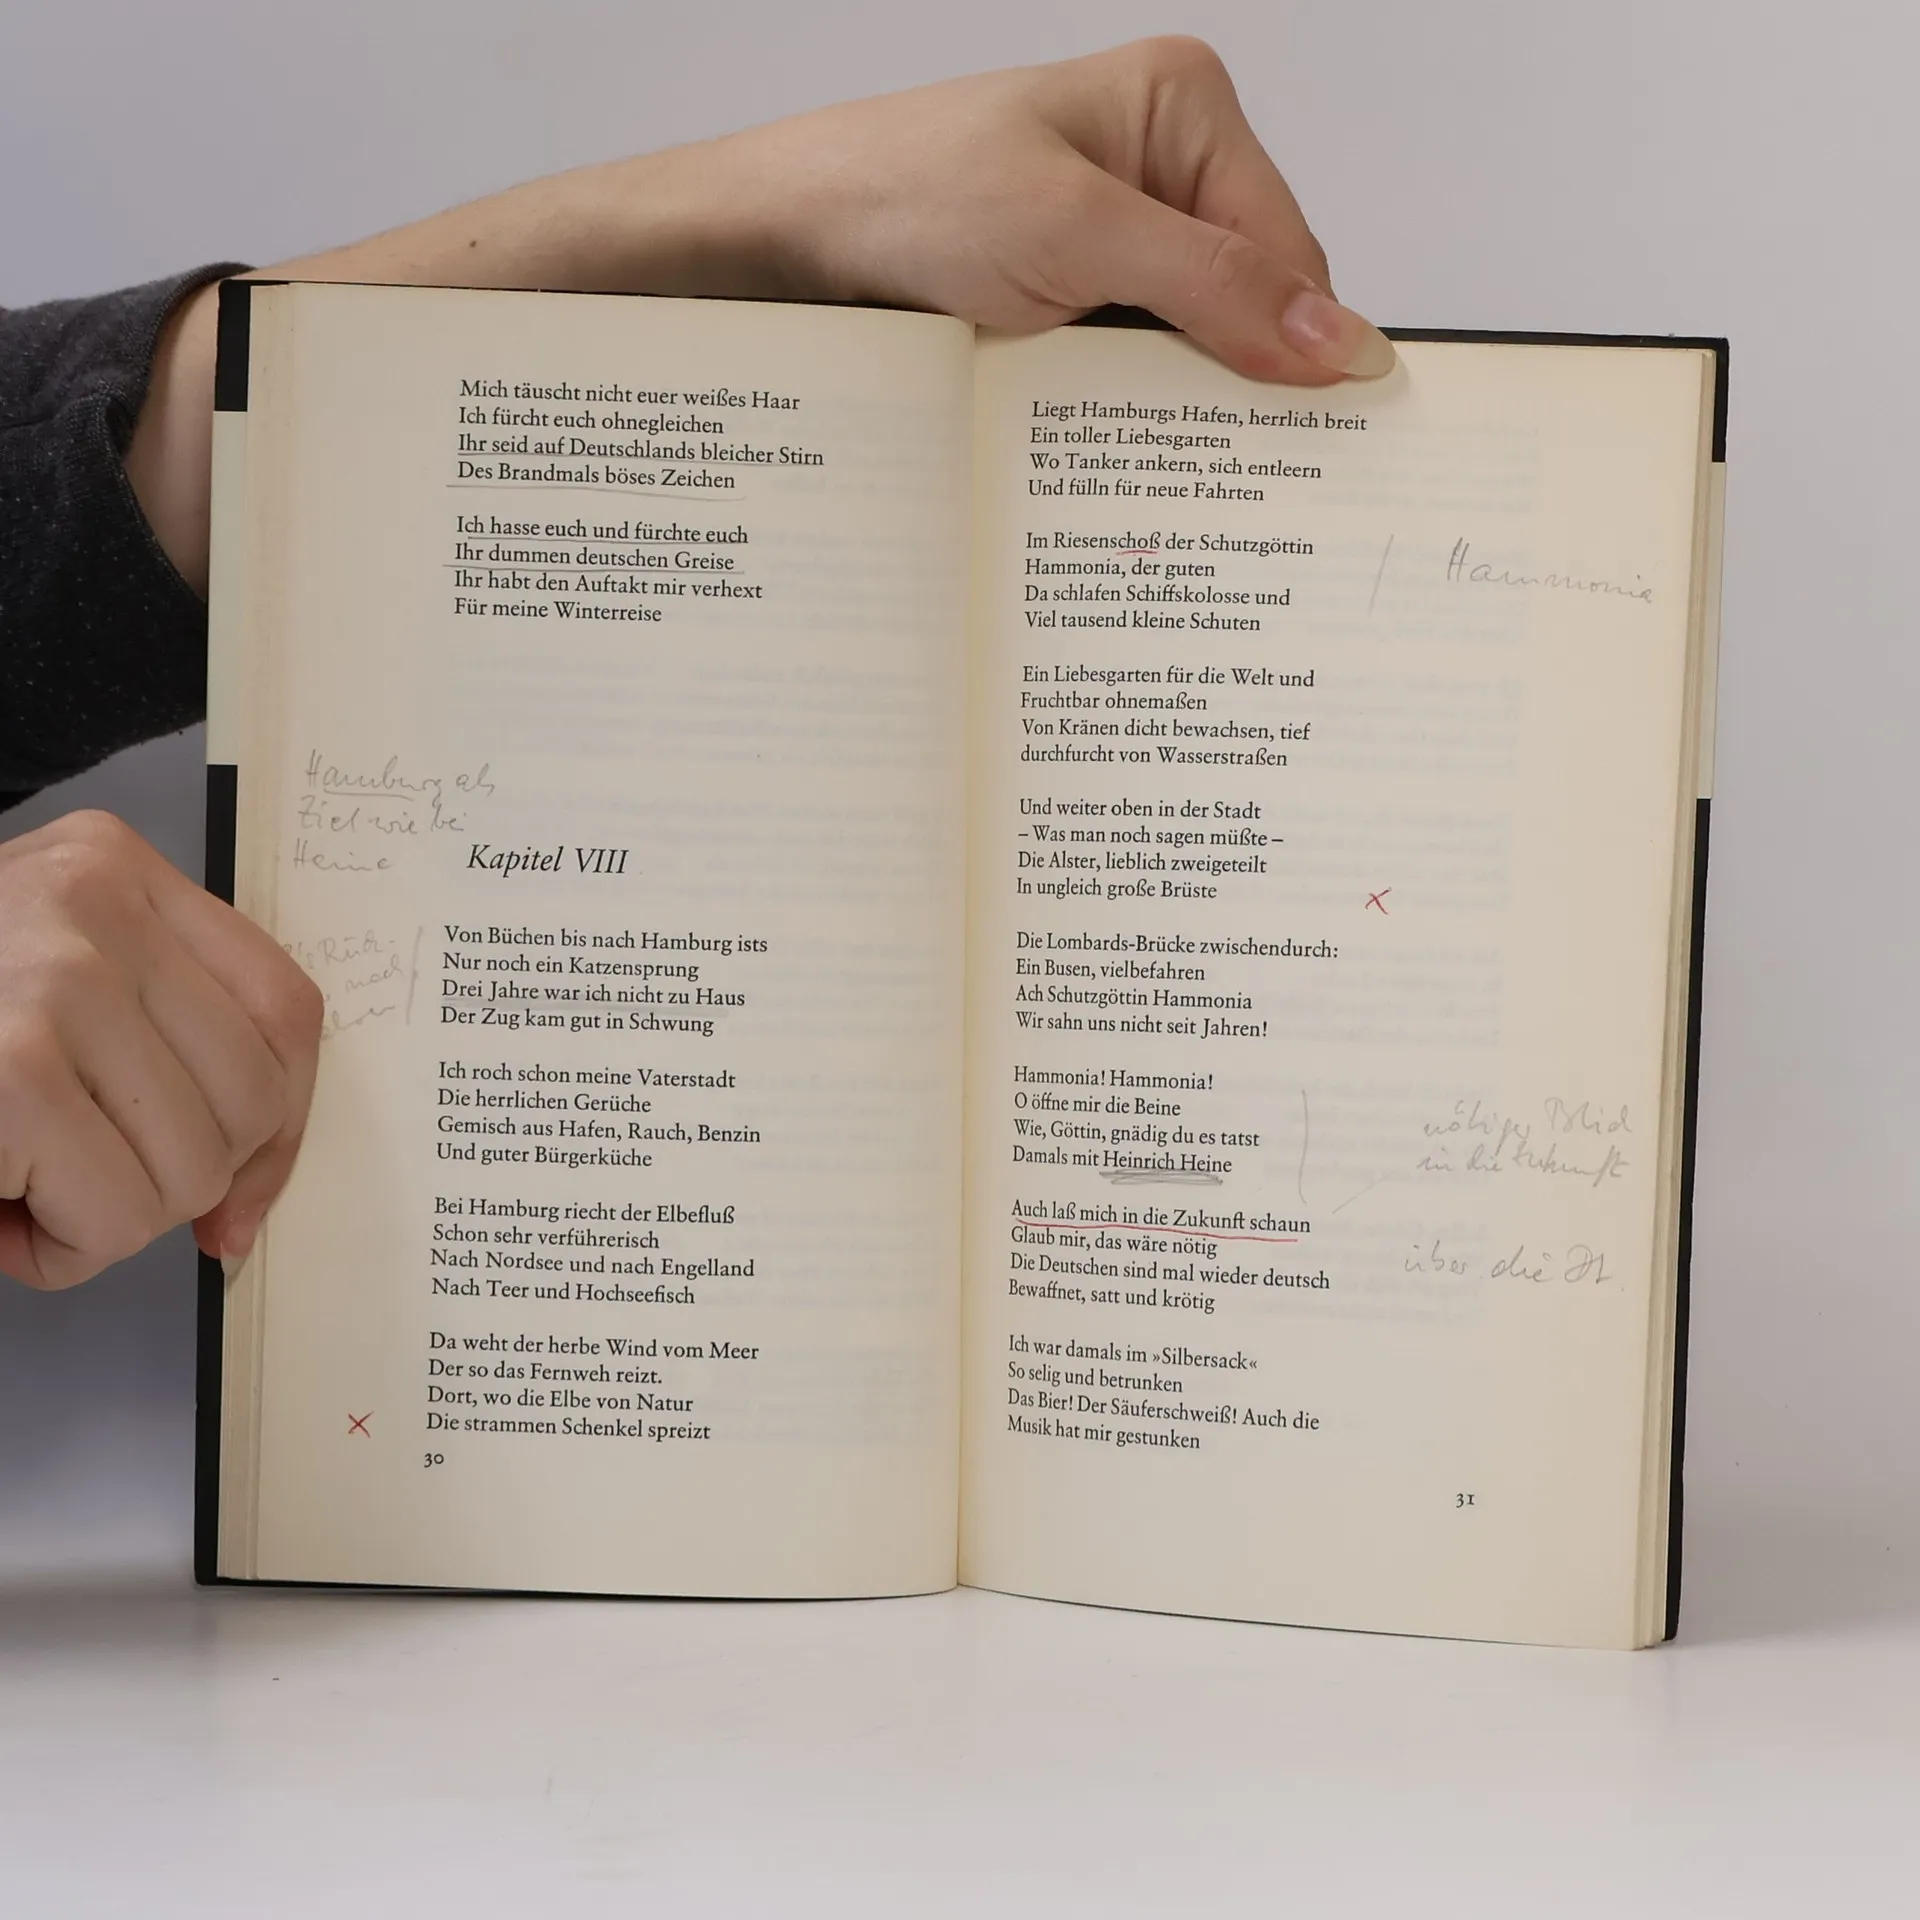 Mich täuscht nicht euer weißes Haar
Ich fürcht euch ohnegleichen
Ihr seid auf Deutschlands bleicher Stirn
Des Brandmals böses Zeichen
Ich hasse euch und fürchte euch
Ihr dummen deutschen Greise
Ihr habt den Auftakt mir verhext
Für meine Winterreise
Hamburg als
Ziel wie bei
Heine
Kapitel VIII
Von Büchen bis nach Hamburg ists
Nur noch ein Katzensprung
Drei Jahre war ich nicht zu Haus
Der Zug kam gut in Schwung
Rück-
nach
Ich roch schon meine Vaterstadt
Die herrlichen Gerüche
Gemisch aus Hafen, Rauch, Benzin
Und guter Bürgerküche
Bei Hamburg riecht der Elbefluß
Schon sehr verführerisch
Nach Nordsee und nach Engelland
Nach Teer und Hochseefisch
Da weht der herbe Wind vom Meer
Der so das Fernweh reizt.
Dort, wo die Elbe von Natur
Die strammen Schenkel spreizt
30
Liegt Hamburgs Hafen, herrlich breit
Ein toller Liebesgarten
Wo Tanker ankern, sich entleern
Und fülln für neue Fahrten
Im Riesenschoß der Schutzgöttin
Hammonia, der guten
Da schlafen Schiffskolosse und
Viel tausend kleine Schuten
Hammonia
Ein Liebesgarten für die Welt und
Fruchtbar ohnemaßen
Von Kränen dicht bewachsen, tief
durchfurcht von Wasserstraßen
Und weiter oben in der Stadt
– Was man noch sagen müßte –
Die Alster, lieblich zweigeteilt
In ungleich große Brüste
Die Lombards-Brücke zwischendurch:
Ein Busen, vielbefahren
Ach Schutzgöttin Hammonia
Wir sahn uns nicht seit Jahren!
Hammonia! Hammonia!
O öffne mir die Beine
Wie, Göttin, gnädig du es tatst
Damals mit Heinrich Heine
nötiger Blick
in die Zukunft
Auch laß mich in die Zukunft schaun
Glaub mir, das wäre nötig
Die Deutschen sind mal wieder deutsch
Bewaffnet, satt und krötig
über die
Ich war damals im »Silbersack«
So selig und betrunken
Das Bier! Der Säuferschweiß! Auch die
Musik hat mir gestunken
31